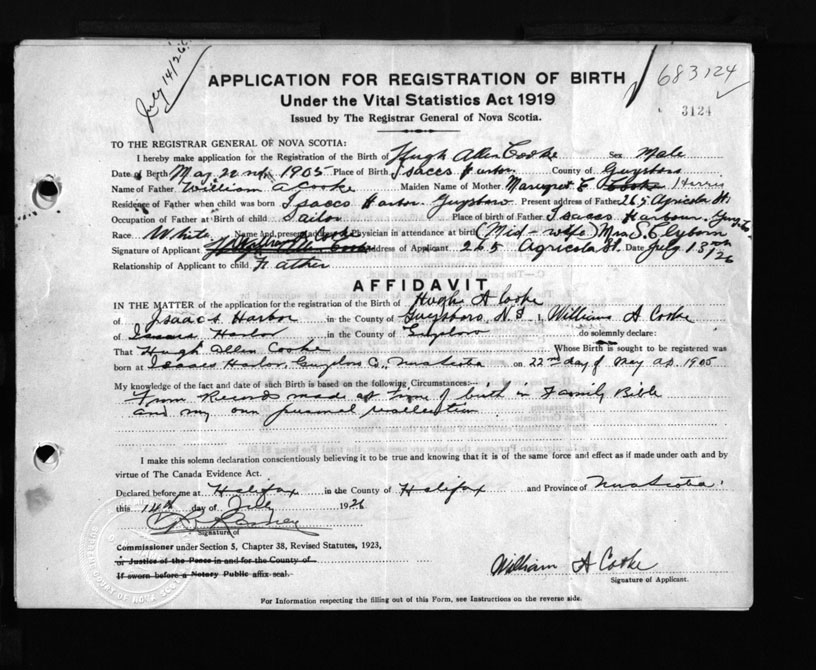 July 14/26
APPLICATION FOR REGISTRATION OF BIRTH
683124
Under the Vital Statistics Act 1919
3124
Issued by The Registrar General of Nova Scotia.
TO THE REGISTRAR GENERAL OF NOVA SCOTIA:
I hereby make application for the Registration of the Birth of Hugh Allen Cooke Sex Male
Date of Berth May 22nd 1905 Place of Birth Isaccs Harbor County of Guysboro
Name of Father William A Cooke Maiden Name of Mother Margret E Cooke
Residence of Father when child was born Isaccs Harbor Guysboro Present address of Father 265 Agricola St
Occupation of Father at Birth of child Sailor Place of birth of Father Isaccs Harbour
Race White Name And present address of Physician in attendance at birth (Mid-wife) Mrs S. Clyborn
Signature of Applicant Address of Applicant 265 Agricola St. Date July 13th/26
Relationship of Applicant to child Father
AFFIDAVIT
IN THE MATTER of the application for the registration of the Birth of Hugh A Cooke
of Isaacs Harbor in the County of Guysboro, N.S I, William A Cooke
of Isaacs Harbor in the County of Guysboro do solemnly declare:
That Hugh Allen Cooke Whose Birth is sought to be registered was
born at Isaacs Harbor, Guysboro Co., Nova Scotia on 22nd day of May A.D. 1905
My knowledge of the fact and date of such Birth is based on the following Circumstances:
From Records made at time of birth in Family Bible
and my own personal recollection
I make this solemn declaration conscientiously believing it to be true and knowing that it is of the same force and effect as if made under oath and by
virtue of The Canada Evidence Act.
Declared before me at Halifax in the County of Halifax and Province of Nova Scotia
this 14th day of July 1926
Signature of
Commissioner under Section 5, Chapter 38, Revised Statutes, 1923,
or Justice of the Peace in and for the County of
If sworn before a Notary Public affix seal.
William A Cooke
Signature of Applicant.
For Information respecting the filling out of this Form, see Instructions on the reverse side.